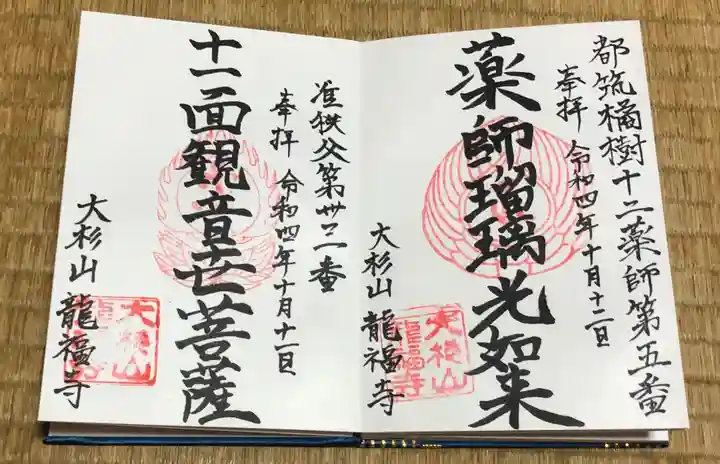 都筑橘樹十二薬師第五番
奉拝 令和四年十月十二日
薬師瑠璃光如来
大杉山 龍福寺
大杉山
龍福寺
准秩父第卅二番
奉拝 令和四年十月十一日
十一面観音世菩薩
大杉山 龍福寺
大杉山
龍福寺